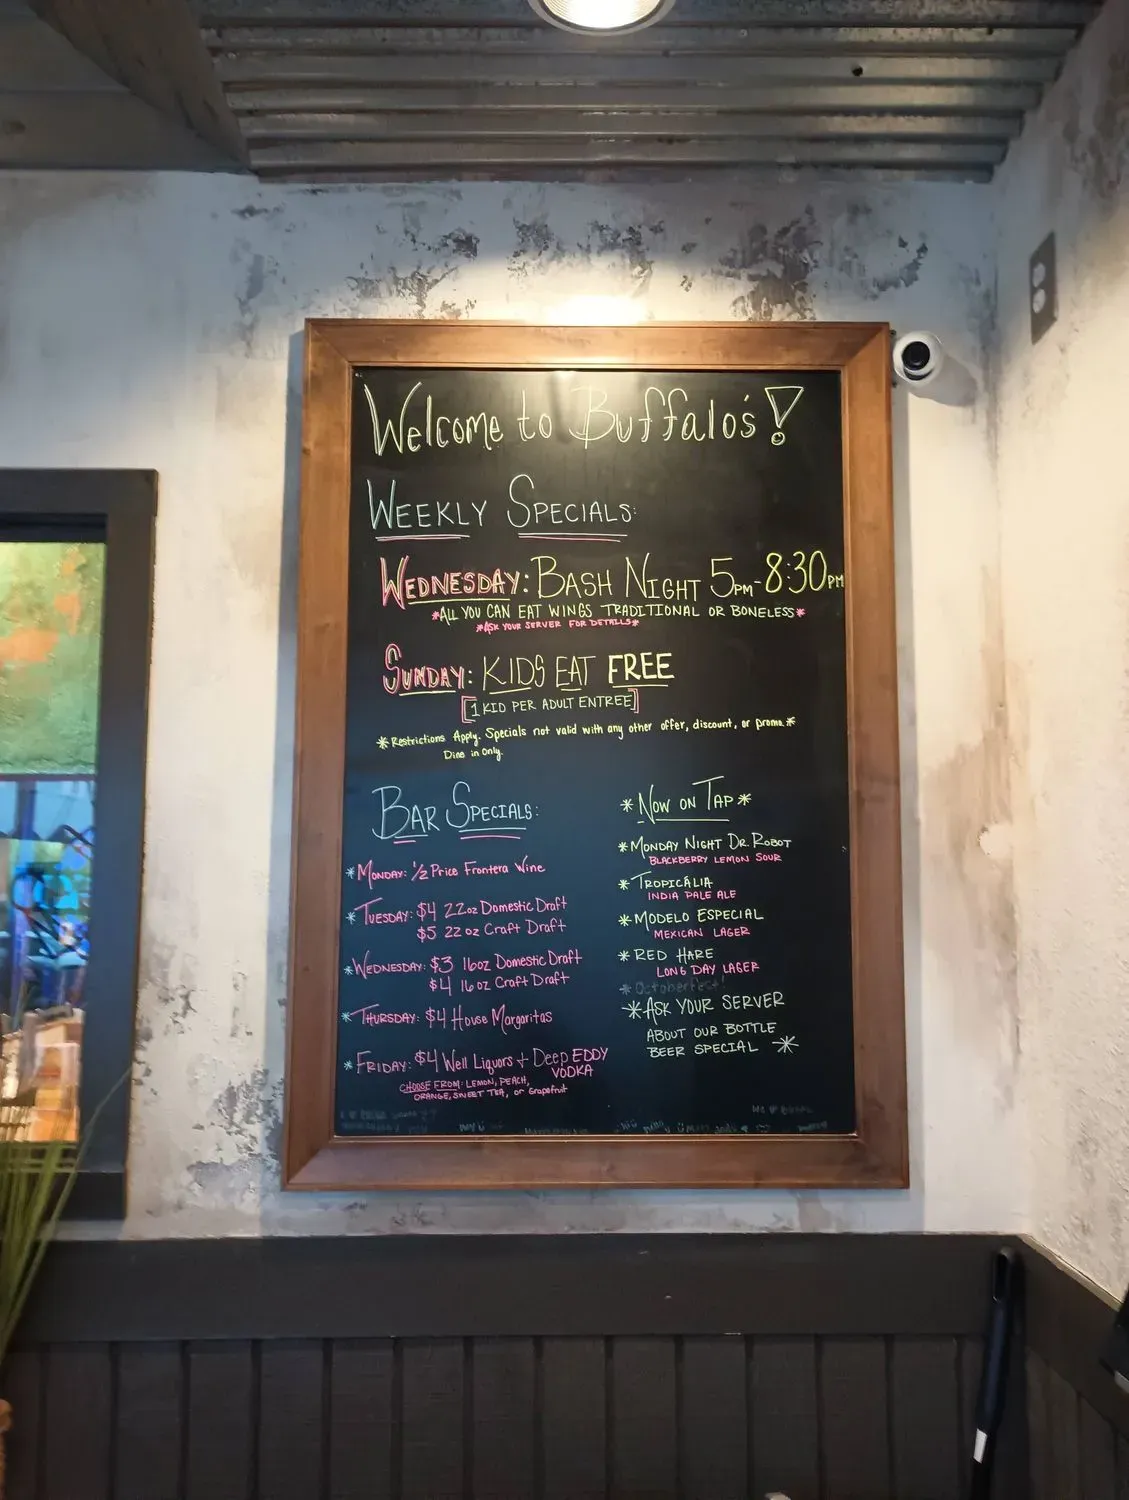 Welcome to Buffalo's!
WEEKLY SPECIALS:
WEDNESDAY: BASH NIGHT 5PM-8:30PM
*ALL YOU CAN EAT WINGS TRADITIONAL OR BONELESS*
*ASK YOUR SERVER FOR DETAILS*
SUNDAY: KIDS EAT FREE
[1 KID PER ADULT ENTREE]
*Restrictions Apply. Specials not valid with any other offer, discount, or promo.*
Dine in Only.
BAR SPECIALS:
*MONDAY: 1/2 Price Frontera Wine
*TUESDAY: $4 22oz Domestic Draft
$5 22 oz Craft Draft
*WEDNESDAY: $3 16oz Domestic Draft
$4 16oz Craft Draft
*THURSDAY: $4 House Margaritas
*FRIDAY: $4 Well Liquors + Deep EDDY
VODKA
CHOOSE FROM: LEMON, PEACH,
ORANGE, SWEET TEA, or Grapefruit
*NOW ON TAP*
*MONDAY NIGHT DR. ROBOT
BLACKBERRY LEMON SOUR
*TROPICÁLIA
INDIA PALE ALE
*MODELO ESPECIAL
MEXICAN LAGER
*RED HARE
LONG DAY LAGER
*Octoberfest!
*ASK YOUR SERVER
ABOUT OUR BOTTLE
BEER SPECIAL *